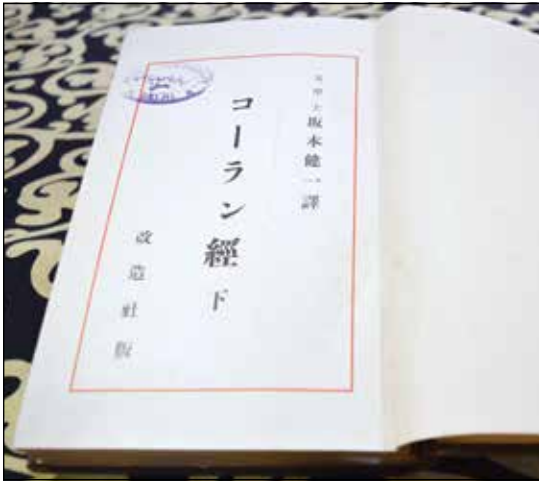 坂本健一譯
コーラン經 下
改造社版